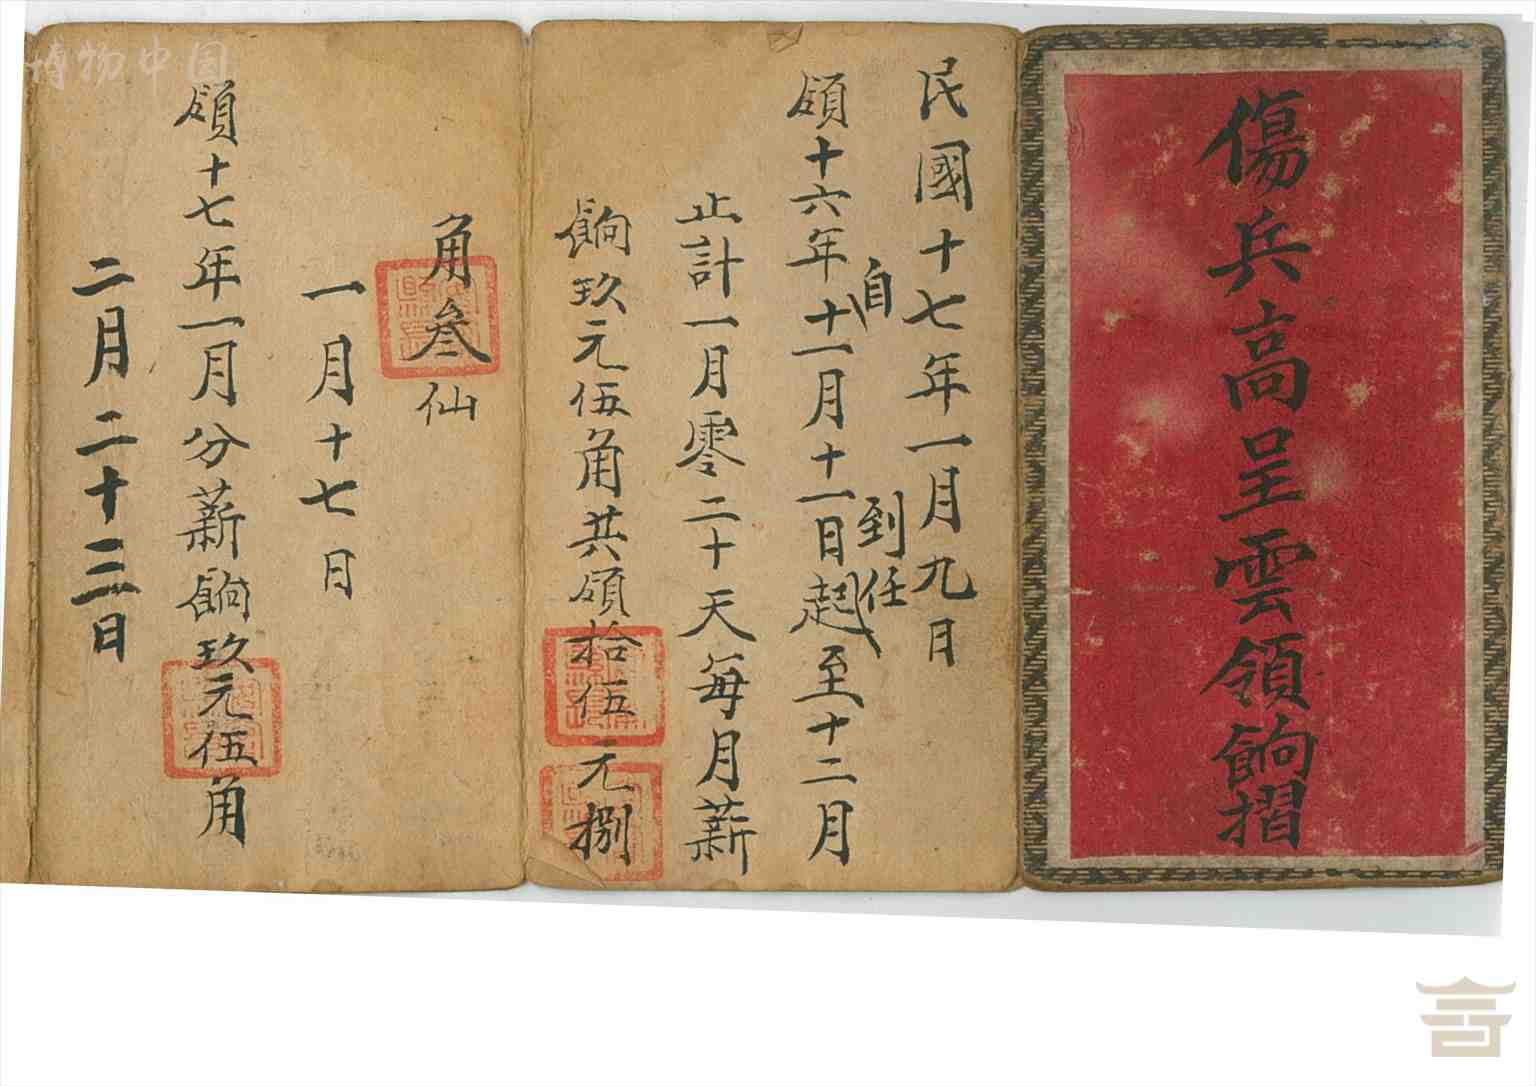 傷兵高呈雲領餉摺
民國十七年一月九日
自到任
領十六年十一月十一日起至十二月
止計一月零二十天每月薪
餉玖元伍角共領拾伍元捌
角叁仙
一月十七日
領十七年一月分薪餉玖元伍角
二月二十三日
博物中国